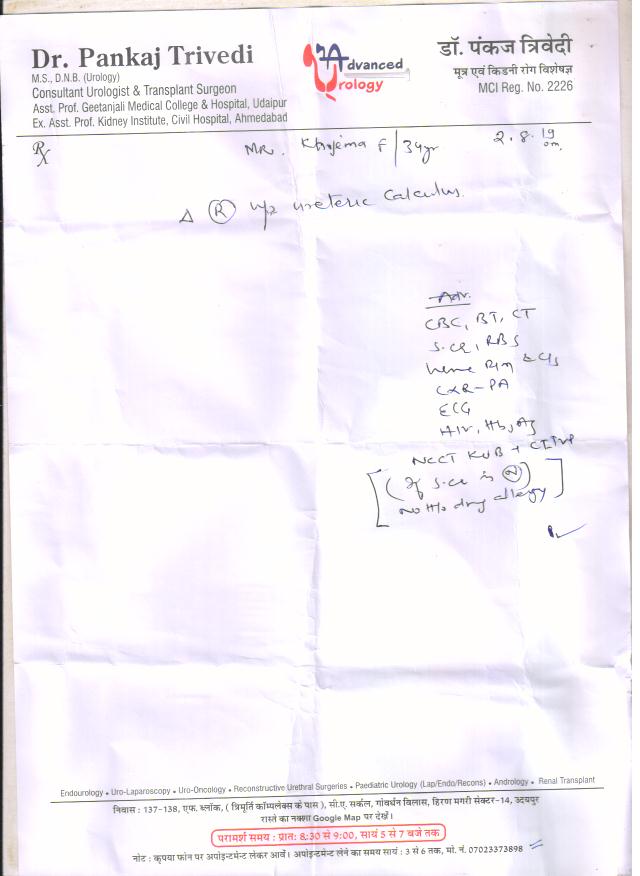 Dr. Pankaj Trivedi
M.S., D.N.B. (Urology)
Consultant Urologist & Transplant Surgeon
Asst. Prof. Geetanjali Medical College & Hospital, Udaipur
Ex. Asst. Prof. Kidney Institute, Civil Hospital, Ahmedabad
Advanced
Urology
डॉ. पंकज त्रिवेदी
मूत्र एवं किडनी रोग विशेषज्ञ
MCI Reg. No. 2226
Rx
MR. Khojema F / 34yr
2.8.19
Δ (R) ureteric calculus.
Adv.
CBC, BT, CT
S.Cr, RBS
Urine R/m & C/s
CXR-PA
ECG
HIV, Hb, Ag
NCCT KUB + CT IVP
[(If S.Cr is (N))
No H/o drug allergy]
Endourology • Uro-Laparoscopy • Uro-Oncology • Reconstructive Urethral Surgeries • Paediatric Urology (Lap/Endo/Recons) • Andrology • Renal Transplant
निवास : 137-138, एफ. ब्लॉक, ( त्रिमूर्ति कॉम्पलेक्स के पास ), सी.ए. सर्कल, गोवर्धन विलास, हिरण मगरी सेक्टर-14, उदयपुर
रास्ते का नक्शा Google Map पर देखें।
परामर्श समय : प्रातः 8:30 से 9:00, सायं 5 से 7 बजे तक
नोट : कृपया फोन पर अपोइन्टमेन्ट लेकर आवें। अपोइन्टमेन्ट लेने का समय सायं : 3 से 6 तक, मो. नं. 07023373898